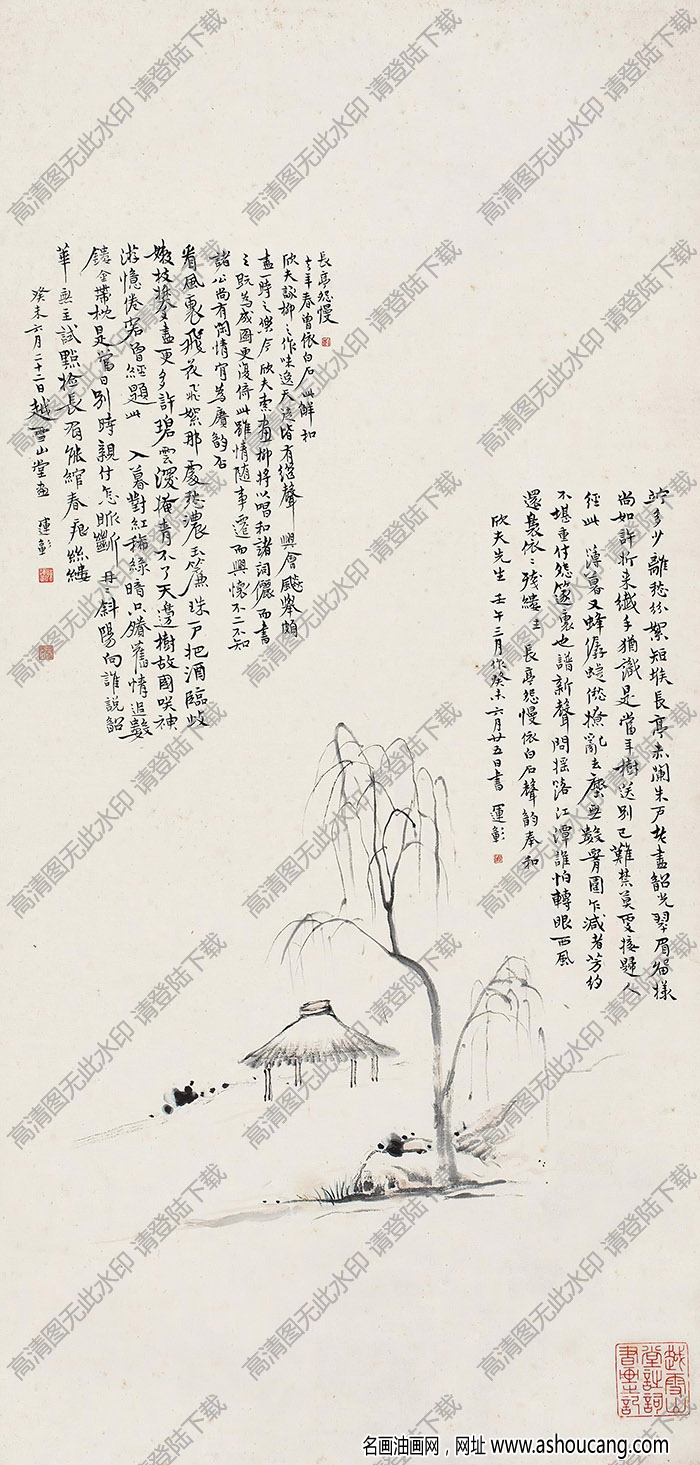 多少離愁如絮短堠長亭赤闌朱戶老盡韶光翠眉樣
尚如許折來纖手猶識是當年樹送別已難禁莫更接歸人
經此 薄暮又蜂孱蝶倦撩亂去塵無數圍乍減者芳約
不堪重付怨篴裏也譜新聲問搖落江潭誰怕轉眼西風
還裊依依殘縷 長亭怨慢依白石聲韵奉和
欣夫先生 壬午三月作癸未六月廿五日書 運彰
長亭怨慢
去年春曾依白石此解和
欣夫詠柳之作味逸天逸皆有繼聲興會飈舉頗
盡一時之樂今欣夫索畫柳將以唱和諸詞儷而書
之既為成圖更漫倚此雖情隨事遷而興懷不二不知
諸公尚有閒情肯為賡韵否
看風裏飛花飛絮那處愁濃玉簾珠戶把酒臨歧
嫩枝攀盡更多許碧雲深掩青不了天邊樹故國咲神
游憶倦客曾經題此 入暮對紅稀綠暗只賸舊情追數
鏤金帶枕是當日別時親付怎眽斷冉冉斜陽向誰說韶
華無主試點撿長眉能綰春絲縷
癸未六月二十二日越雪山堂畫 運彰
越雪山
堂註詞
書畫記
高清图无此水印 请登陆下载
名画油画网，网址 www.ashoucang.com